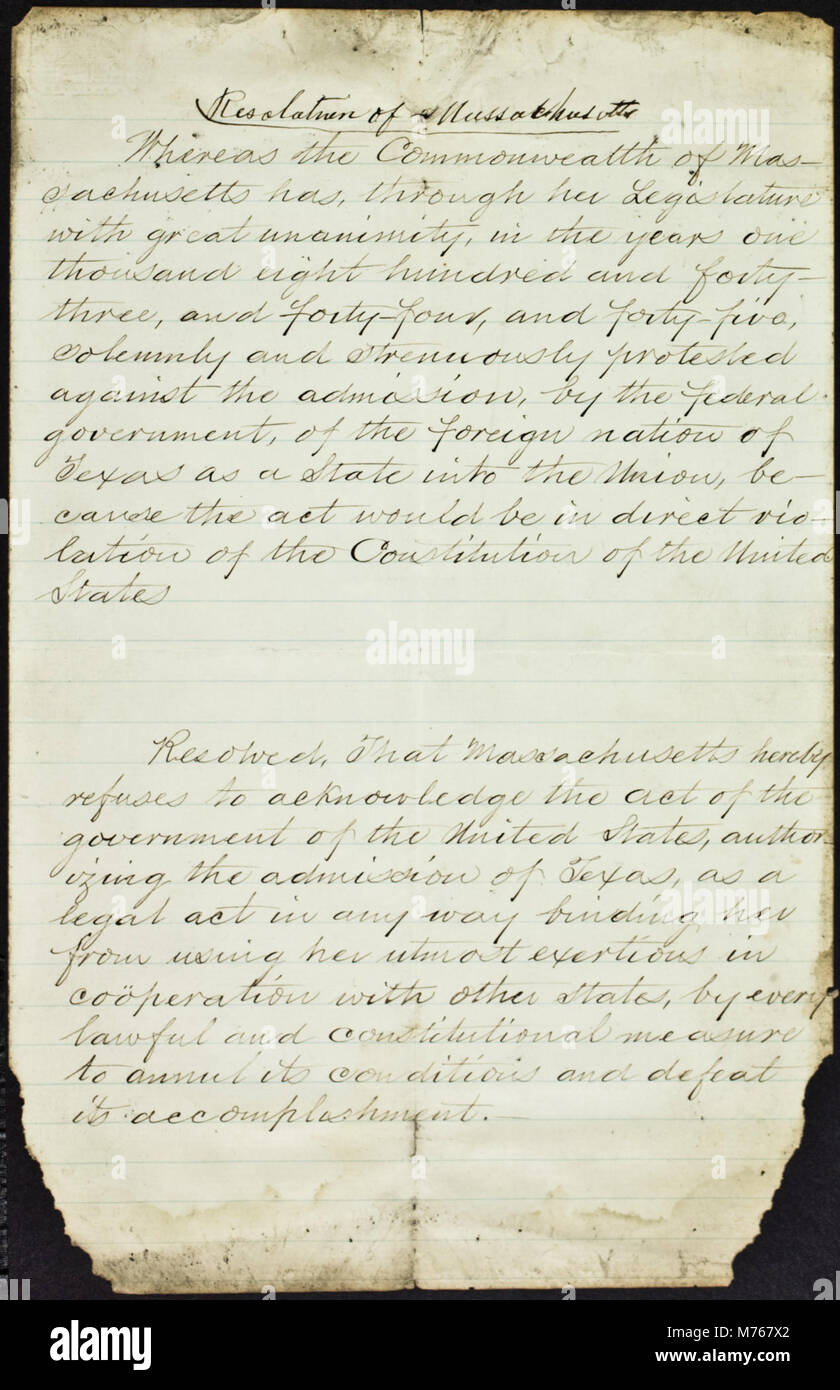 Resolution of Massachusetts
Whereas the Commonwealth of Mas-
sachusetts has, through her Legislature
with great unanimity, in the years one
thousand eight hundred and forty-
three, and forty-four, and forty-five,
solemnly and strenuously protested
against the admission, by the federal
government, of the foreign nation of
Texas as a State into the Union, be-
cause the act would be in direct vio-
lation of the Constitution of the United
States
Resolved, That Massachusetts hereby
refuses to acknowledge the act of the
government of the United States, author-
izing the admission of Texas, as a
legal act in any way binding her
from using her utmost exertions in
coöperation with other States, by every
lawful and constitutional measure
to annul its conditions and defeat
its accomplishment.—
a alamy stock photo
alamy
Image ID: M767X2
www.alamy.com